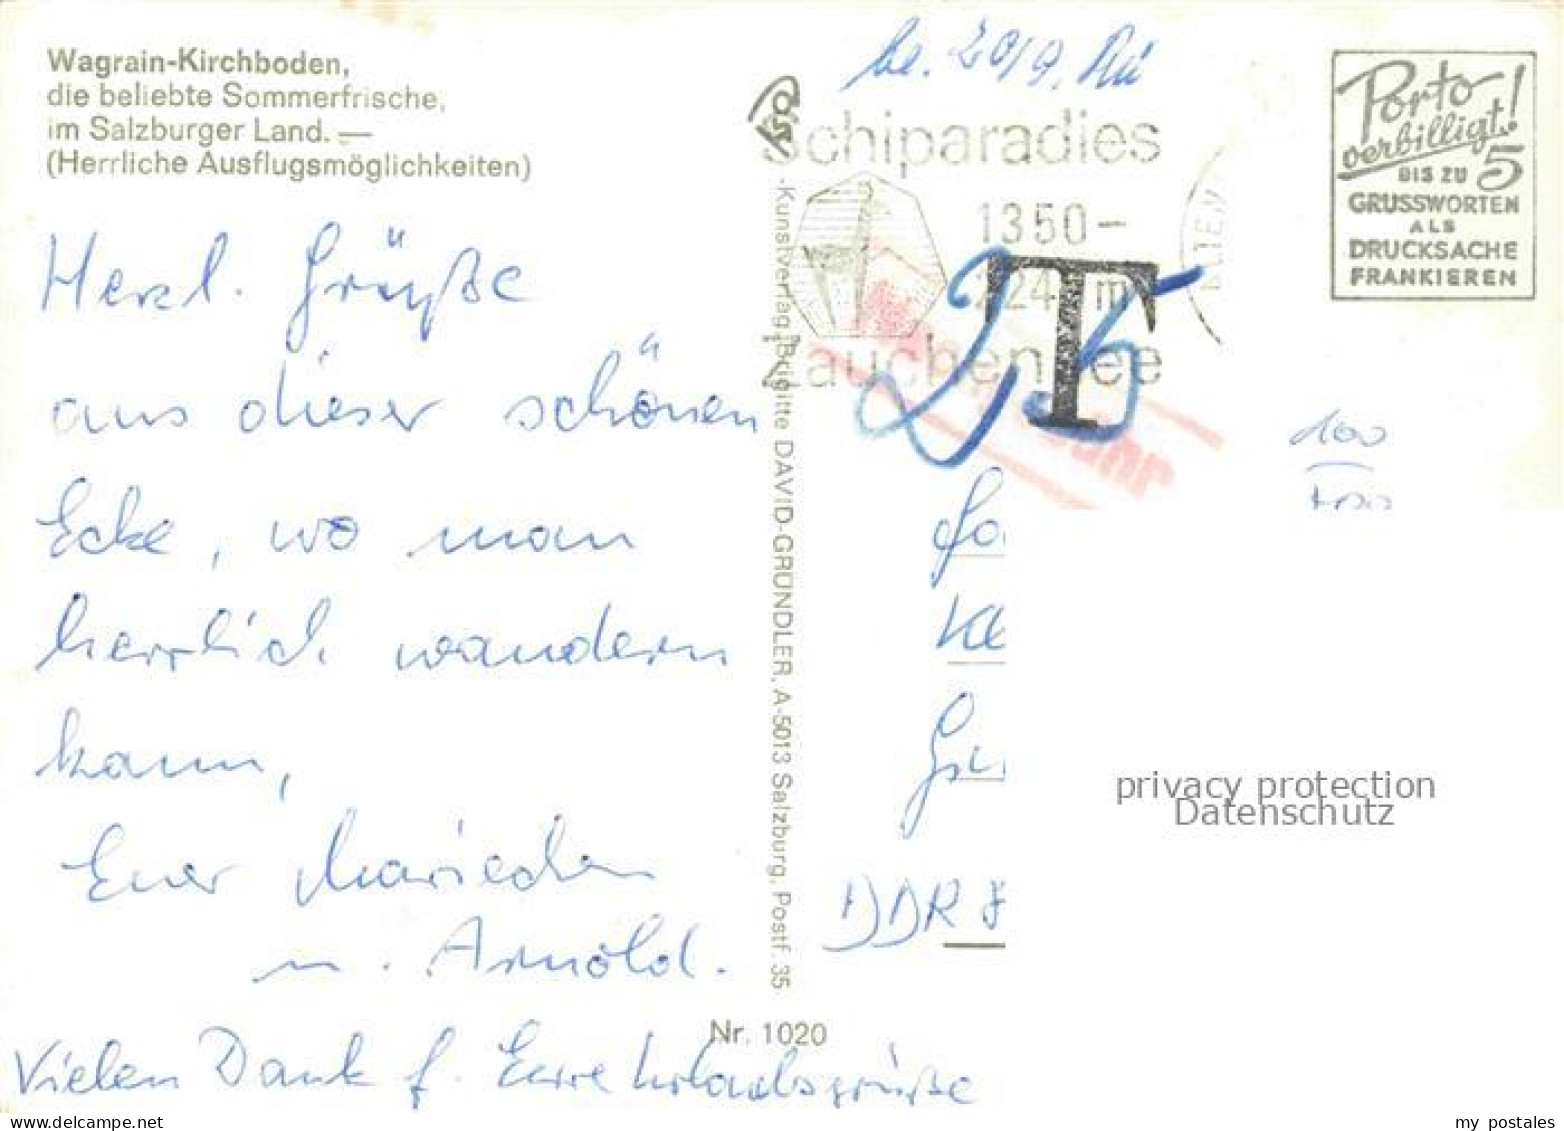 Wagrain-Kirchboden,
die beliebte Sommerfrische,
im Salzburger Land. —
(Herrliche Ausflugsmöglichkeiten)
Herzl. Grüße
aus dieser schönen
Ecke, wo man
herrlich wandern
kann,
Euer Mariechen
u. Arnold.
Vielen Dank f. Eure Urlaubsgrüße
Nr. 1020
-Kunstverlag Brigitte DAVID-GRÜNDLER, A-5013 Salzburg, Postf. 35
Schiparadies
1350 –
m
T
25
Porto
verbilligt!
BIS ZU 5
GRUSSWORTEN
ALS
DRUCKSACHE
FRANKIEREN
100
DDR
privacy protection
Datenschutz
my postales